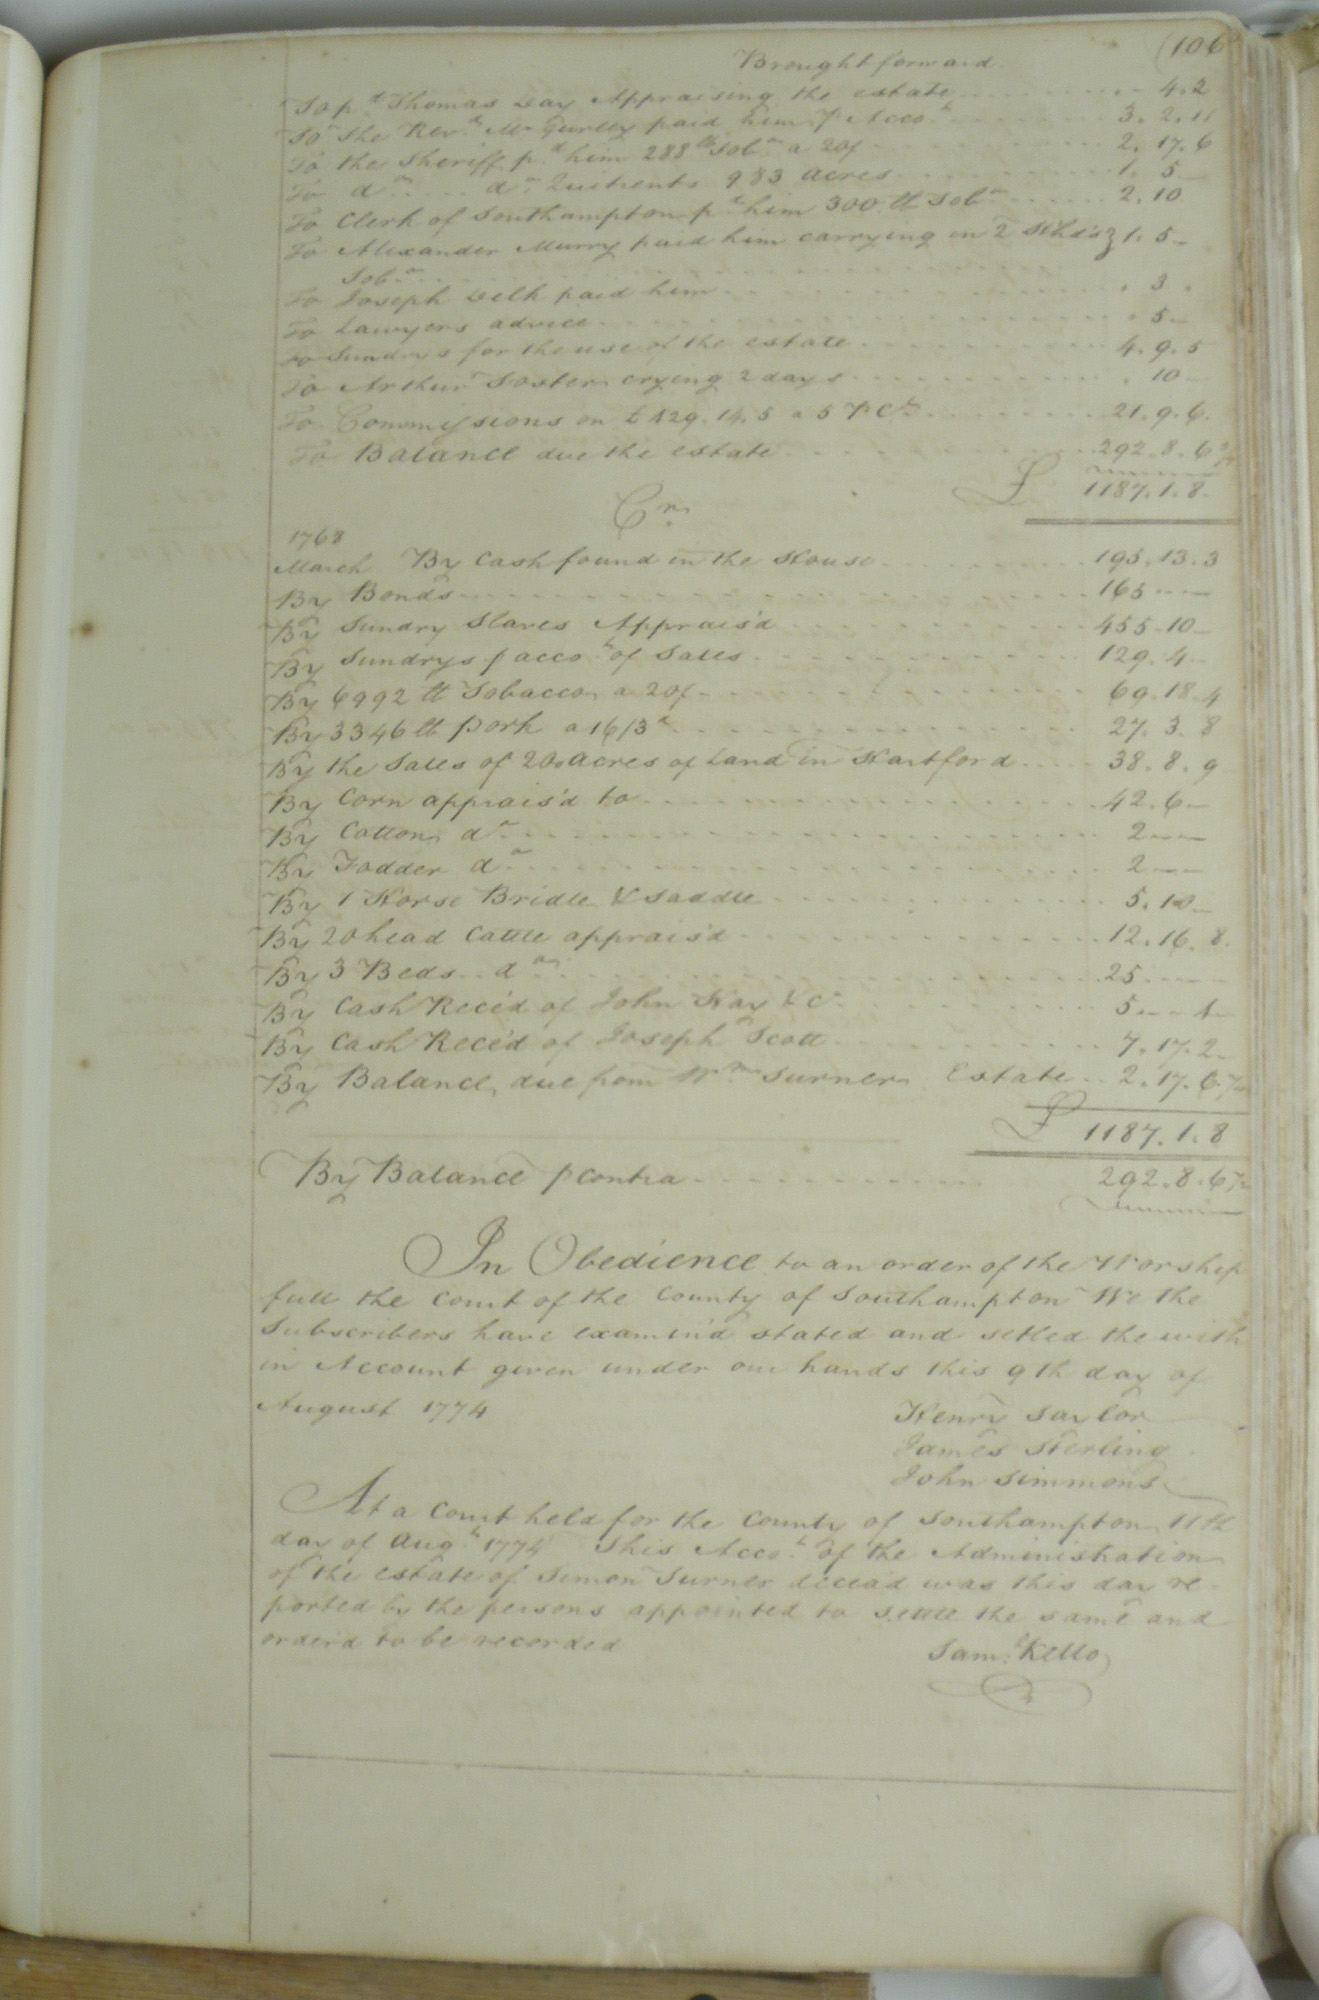 (106
Brought forward
To pd Thomas Day Appraising the estate 4.2
To the Revd Mr Gurley paid him P Accot 3.2.11
To the Sheriff pd him 288 lb Tobo a 20/ 2.17.6
To do do Quitrents 983 acres 1.5
To Clerk of Southampton pd him 300 lb Tobo 2.10
To Alexander Murry paid him carrying on 2 Hhds 1.5
Tobo
To Joseph Delk paid him 3
To Lawyers advice 5
To Sundrys for the use of the estate 4.9.5
To Arthur Foster crying 2 days 10
To Commysions on £429.14.5 a 5 P Ct 21.9.6
To Balance due the estate 292.8.6
£ 1187.1.8
Cr
1768
March By Cash found in the House 195.13.3
By Bonds 165
By Sundry Slaves Apprais'd 455.10
By Sundrys p accot of Sales 129.4
By 6992 lb Tobacco a 20/ 69.18.4
By 3346 lb pork a 16/3d 27.3.8
By the Sales of 200 acres of Land in Hartford 38.8.9
By Corn apprais'd to 42.6
By Cotton do 2
By Fodder do 2
By 1 Horse Bridle & Saddle 5.10
By 20 head Cattle apprais'd 12.16.8
By 3 Beds do 25
By Cash Rece'd of John Hay & Co 5
By Cash Rece'd of Joseph Scott 7.17.2
By Balance due from Wm Turners Estate 2.17.6
£ 1187.1.8
By Balance p Contra 292.8.6
In Obedience to an order of the Worship
full the Court of the County of Southampton We the
Subscribers have examin'd stated and setled the with
in Account given under our hands this 9th day of
August 1774
Henry Taylor
James Sterling
John Simmons
At a Court held for the County of Southampton 11th
day of Augt 1774 This Accot of the Administration
of the estate of Simon Turner decead was this day re
ported by the persons appointed to settle the same and
order'd to be recorded
Saml Kello